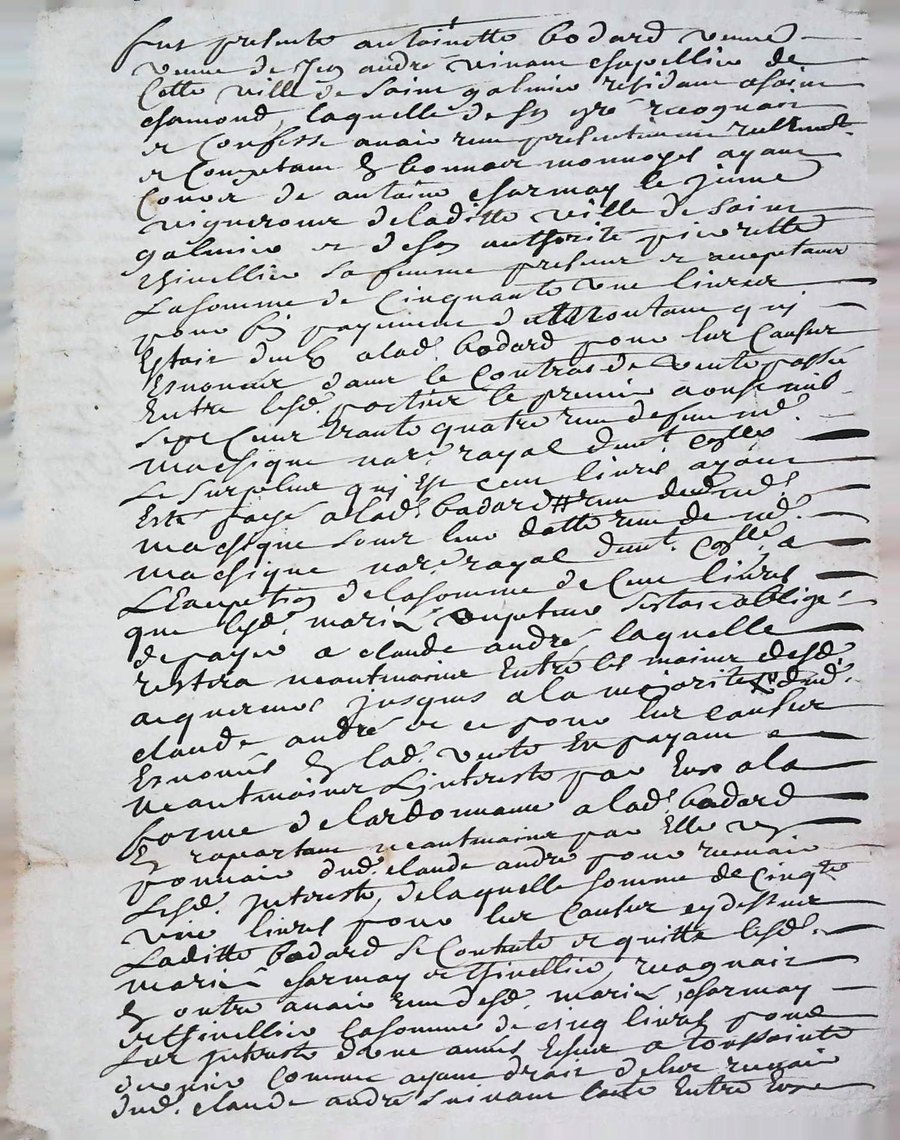 fut presente antoinette bodard veuve
veuve de Jean andré vivant chapellier de
Cette ville de Saint galmier residant a Saint
chamond, laquelle de son gré recognait
et Confesse avoir reçu presentement reellement
et Comptant en bonnes monnoyes ayant
Cours de antoine charmay le jeune
vigneron de laditte ville de Saint
galmier et de son authorité pierrette
thivellier sa femme presents et acceptants
La somme de Cinquante une livres
pour fin payement du montant qui
Estoit deub a lad. bodard pour les Causes
Esnoncés dans le Contrat de vente passé
Entre lesd. parties le premier aoust mil
Sept Cent trante quatre reçu de me
machique no.re royal
Le Surplus qui est Cent livres ayant
Esté payé a lad. bodard
machique sous leur datte reçu de
machique no.re royal
L'Exception de la somme de Cent livres
que lesd. mariés acceptans obligé
de payer a claude andré laquelle
restera neantmoins Entre les mains desd.
acquereurs jusques a la majorité dud.
claude andré et ce pour les causes
Esnoncés en lad. vente En payant
neantmoins L'interests par Eux a la
forme de lordonnance a lad. bodard
En raportant neantmoins par Elle
pouvoir dud. claude andré pour recevoir
lesd. interests, de laquelle somme de Cinquante
une livres pour les Causes cy dessus
Laditte bodard se Contente et quitte lesd.
mariés charmay et thivellier, recognait
En outre avoir reçu desd. mariés charmay
et thivellier la somme de cinq livres pour
les interests d'une année Escheue a toussaints
dernier comme ayant droit de les recevoir
dud. claude andré suivant Entre Eux